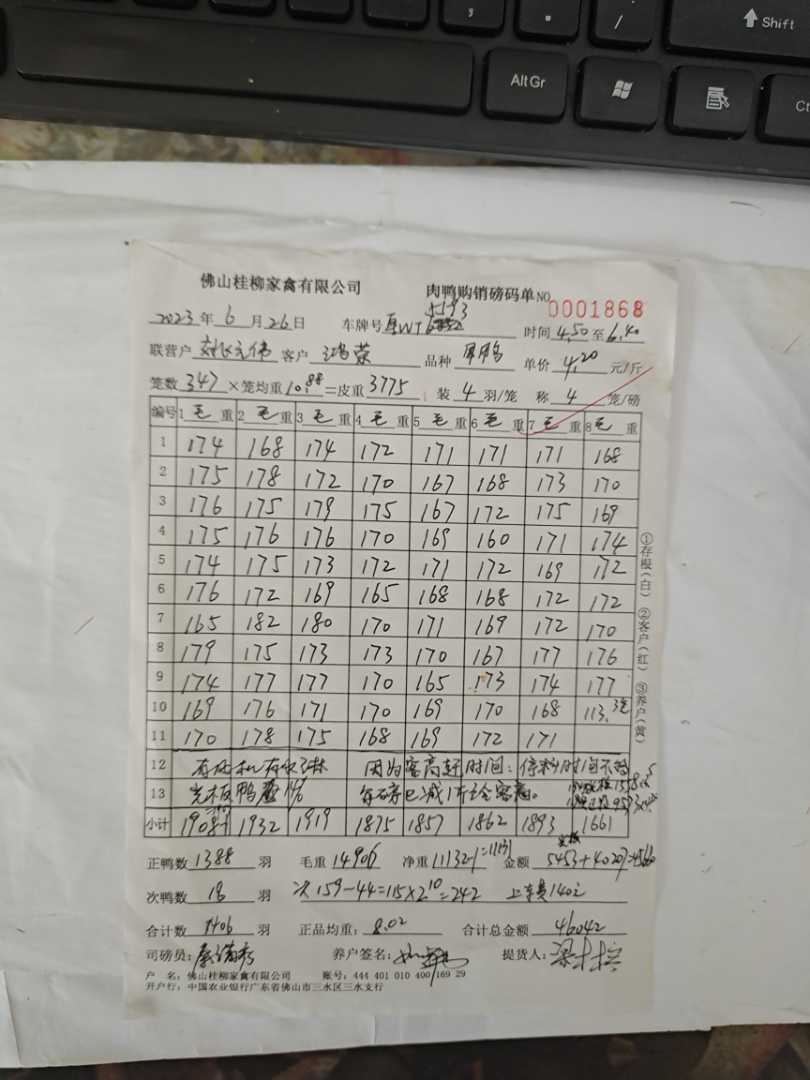 Shift
AltGr
佛山桂柳家禽有限公司 肉鸭购销磅码单 NO 0001868
5193
2023年6月26日 车牌号 时间4.50至6.40
联营户 客户 鸿荣 品种 单价4.20元/斤
笼数347×笼均重10.88=皮重3775 装4羽/笼 称4笼/磅
编号 1毛重 2毛重 3毛重 4毛重 5毛重 6毛重 7毛重 8毛重
1 174 168 174 172 171 171 171 168
2 175 178 172 170 167 168 173 170
3 176 175 179 175 167 172 175 169
4 175 176 176 170 169 160 171 174
5 174 175 173 172 171 172 169 172
6 176 172 169 165 168 168 172 172
7 165 182 180 170 171 169 172 170
8 179 175 173 173 170 167 177 176
9 174 177 177 170 165 173 174 177
10 169 176 171 170 169 170 168 113.
11 170 178 175 168 169 172 171
12 因为客商赶时间:停料时间不够
13 每磅已减1斤给客商。
小计 1908 1932 1919 1875 1857 1862 1893 1661
①存根(白) ②客户(红) ③养户(黄)
正鸭数1388羽 毛重14906 净重11132-1=11131 金额5453+40207=45660
次鸭数18羽 次159-44=115×2.10=242 上车费140元
合计数1406羽 正品均重:8.02 合计总金额46042
司磅员: 养户签名: 提货人:
户 名:佛山桂柳家禽有限公司 账号:444 401 010 400 169 29
开户行:中国农业银行广东省佛山市三水区三水支行